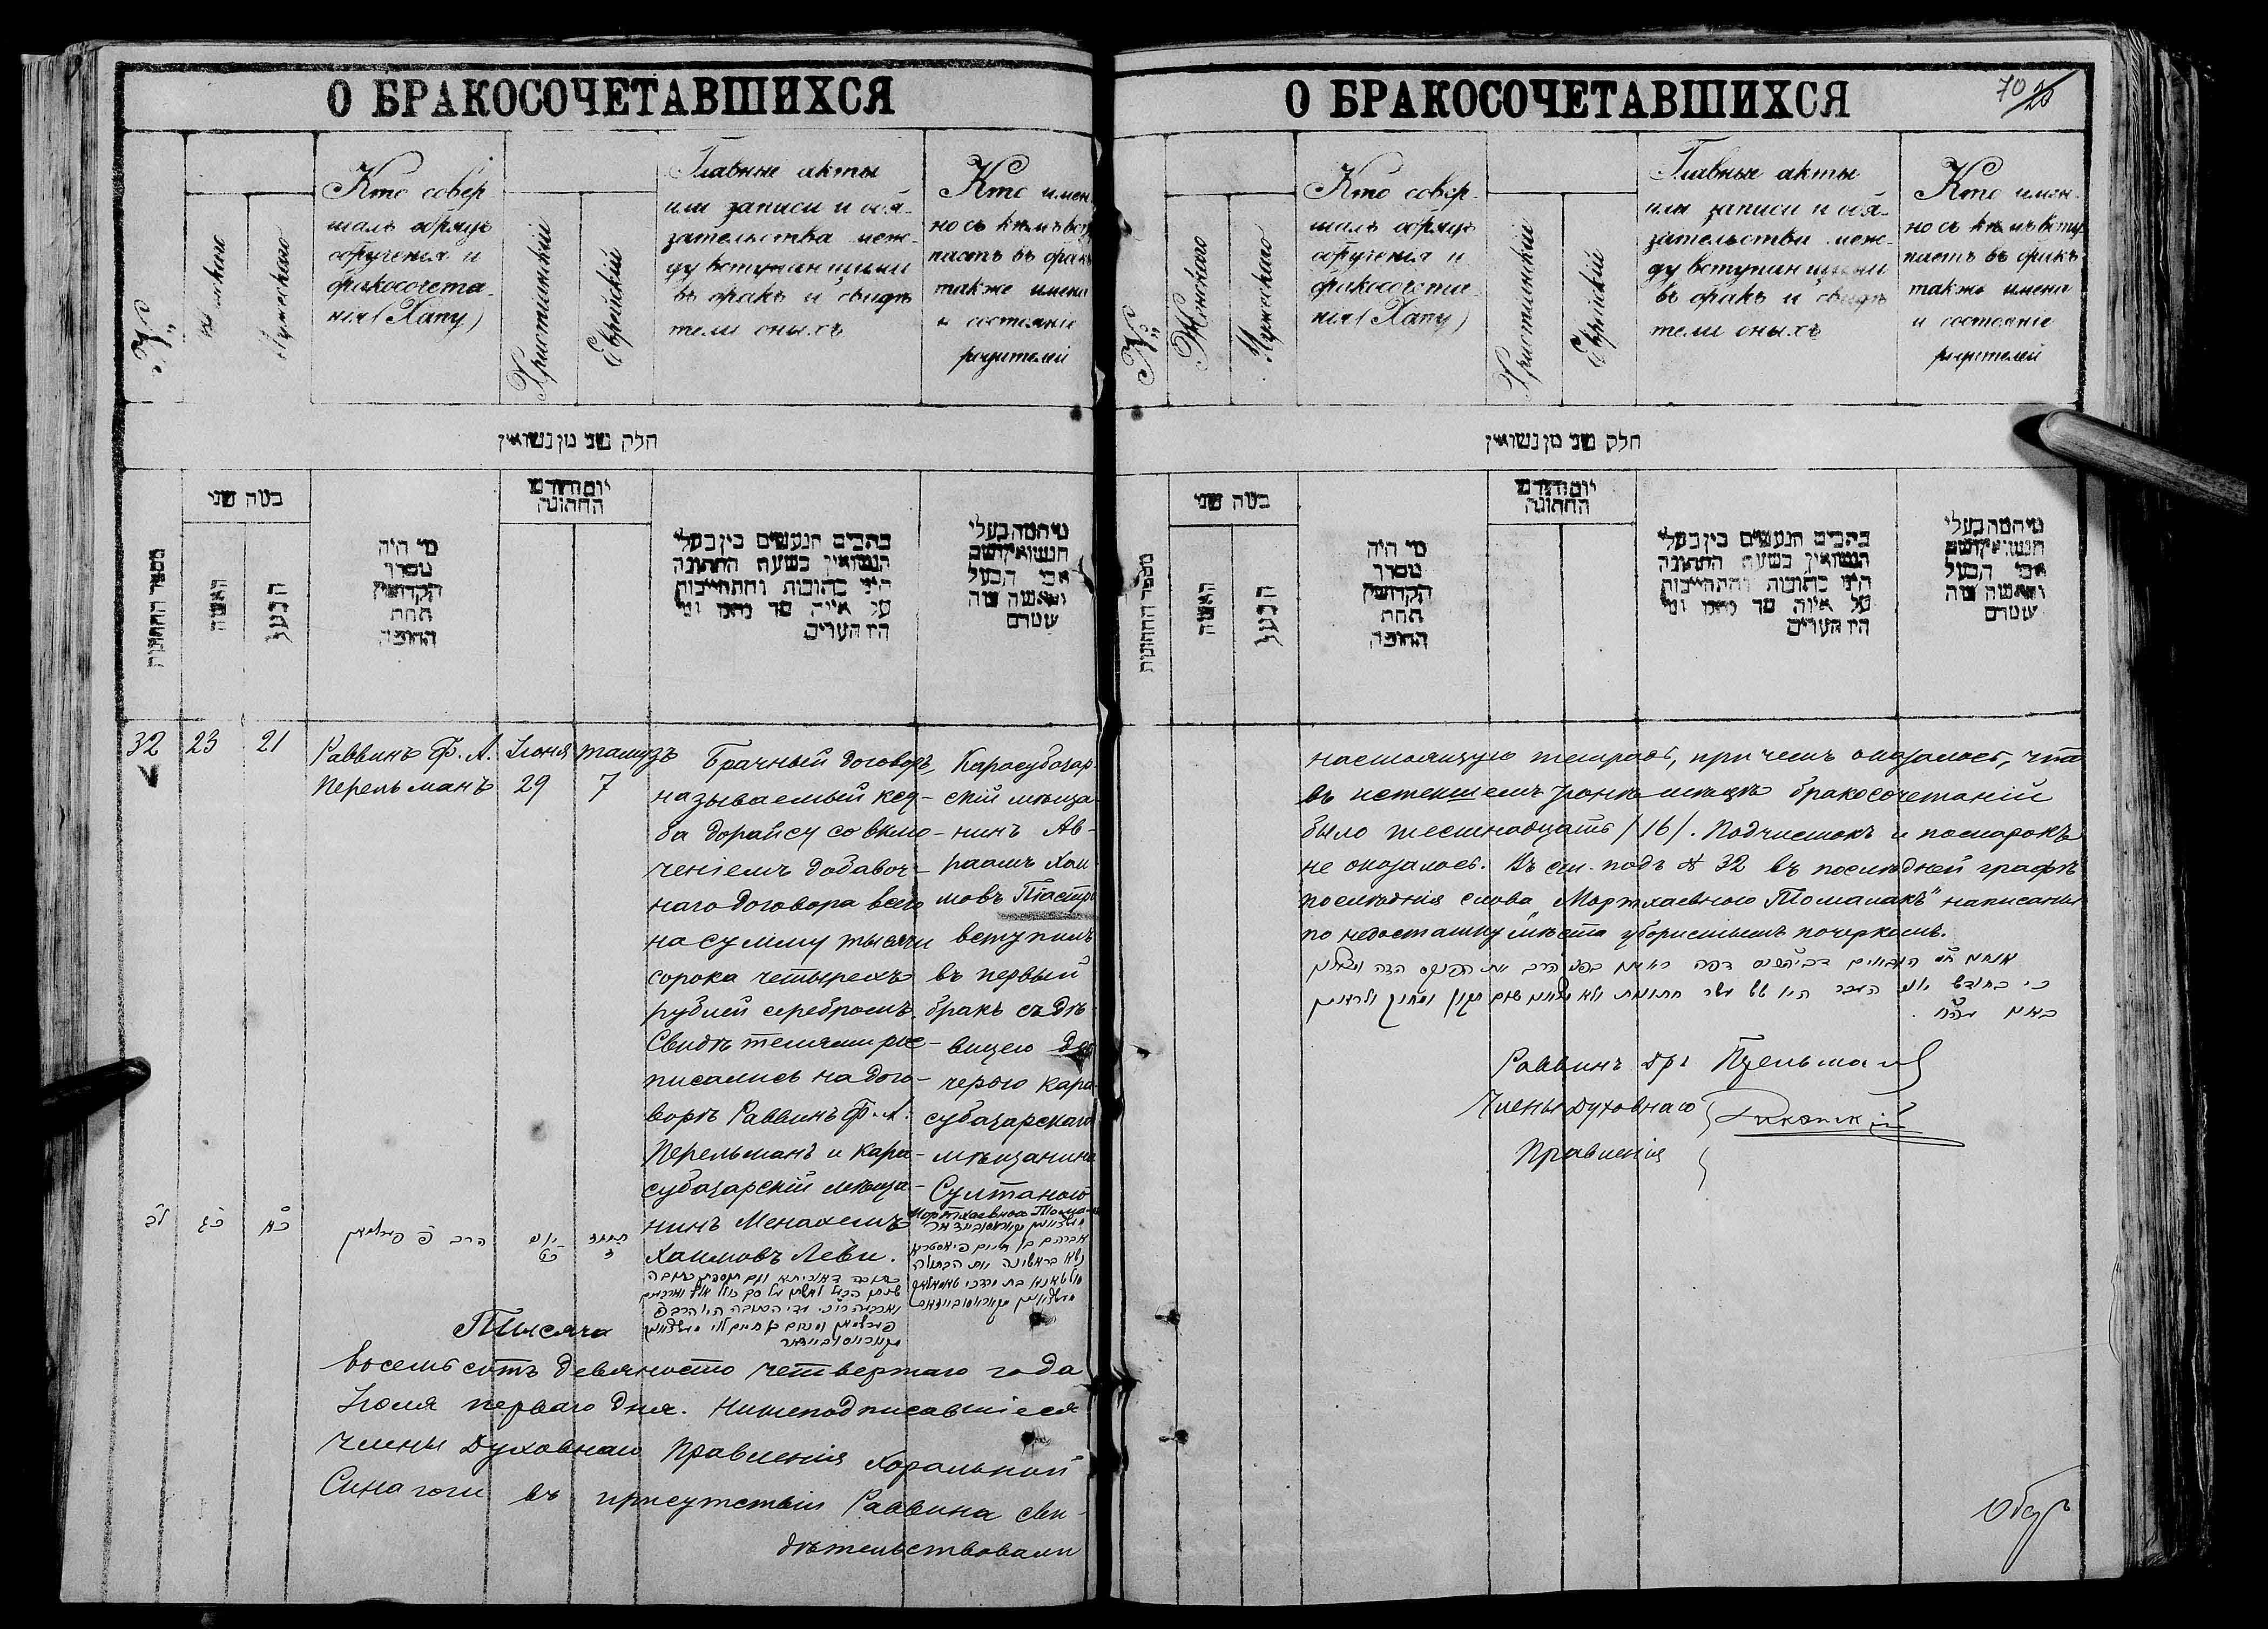 О БРАКОСОЧЕТАВШИХСЯ
№
Женскаго
Мужескаго
Кто совер-
шалъ обрядъ
обрученія и
бракосочета-
нія (Хапу)
Христіанскій
Еврейскій
Главные акты
или записи и обя-
зательства меж-
ду вступающими
въ бракъ и свидѣ
тели оныхъ
Кто имен
но съ кѣмъ всту
паетъ въ бракъ
также имена
и состояніе
родителей
חלק שני מן נשואין
מספר החתונות
כמה שני
האשה
הבעל
מי היה
מסדר
הקדושין
תחת
החופה
יום וחודש
החתונה
כתבים הנעשים בין בעלי
הנשואין בשעת החתונה
היינו כתובות והתחייבות
על איזה סך נתנו ומי
היו העדים
מי המה בעלי
הנשואין ושם
אבי הבעל
והאשה ומה
שטרם
32
23
21
Раввинъ Ф. А.
Перельманъ
Іюня
29
тамузъ
7
Брачный договоръ,
называемый кед-
ба дорайсу со вклю-
ченіемъ добавоч-
наго договора всего
на сумму тысячи
сорока четырехъ
рублей серебромъ.
Свидѣтелями рос-
писались на дого-
ворѣ Раввинъ Ф. А.
Перельманъ и Кара-
субазарскій мѣща-
нинъ Менахемъ
Хаимовъ Леви.
Карасубазар-
скій мѣща-
нинъ Ав-
раамъ Хаи
мовъ Піастро
вступилъ
въ первый
бракъ съ дѣ-
вицею до
черью Кара-
субазарскаго
мѣщанина
Султаною
Мортхаевною Томала
לב
כג
כא
הרב פ פערלמאן
יוני
כט
תמוז
ז
אברהם בן חיים פיאסטרא
נשא בראשונה את הבתולה
סולטאנא בת מרדכי טאמאלאק
Тысяча
восемьсотъ девяносто четвертаго года
Іюля перваго дня. Нижеподписавшіеся
члены Духовнаго Правленія Хоральной
Синагоги въ присутствіи Раввина сви-
дѣтельствовали
О БРАКОСОЧЕТАВШИХСЯ
70
№
Женскаго
Мужескаго
Кто совер-
шалъ обрядъ
обрученія и
бракосочета-
нія (Хапу)
Христіанскій
Еврейскій
Главные акты
или записи и обя-
зательства меж-
ду вступающими
въ бракъ и свидѣ
тели оныхъ
Кто имен-
но съ кѣмъ всту
паетъ въ бракъ
также имена
и состояніе
родителей
חלק שני מן נשואין
מספר החתונות
כמה שני
האשה
הבעל
מי היה
מסדר
הקדושין
תחת
החופה
יום וחודש
החתונה
כתבים הנעשים בין בעלי
הנשואין בשעת החתונה
היינו כתובות והתחייבות
על איזה סך נתנו ומי
היו העדים
מי המה בעלי
הנשואין ושם
אבי הבעל
והאשה ומה
שטרם
настоящую тетрадь, при чемъ оказалось, что
въ истекшемъ Іюнѣ мѣсяцѣ бракосочетаній
было шестнадцать /16/. Подчистокъ и помарокъ
не оказалось. Въ ст. подъ № 32 въ послѣдней графѣ
послѣднія слова „Мортхаевною Томалакъ" написаны
по недостатку мѣста убористымъ почеркомъ.
Раввинъ Др. Перельманъ
Члены Духовнаго
Правленія